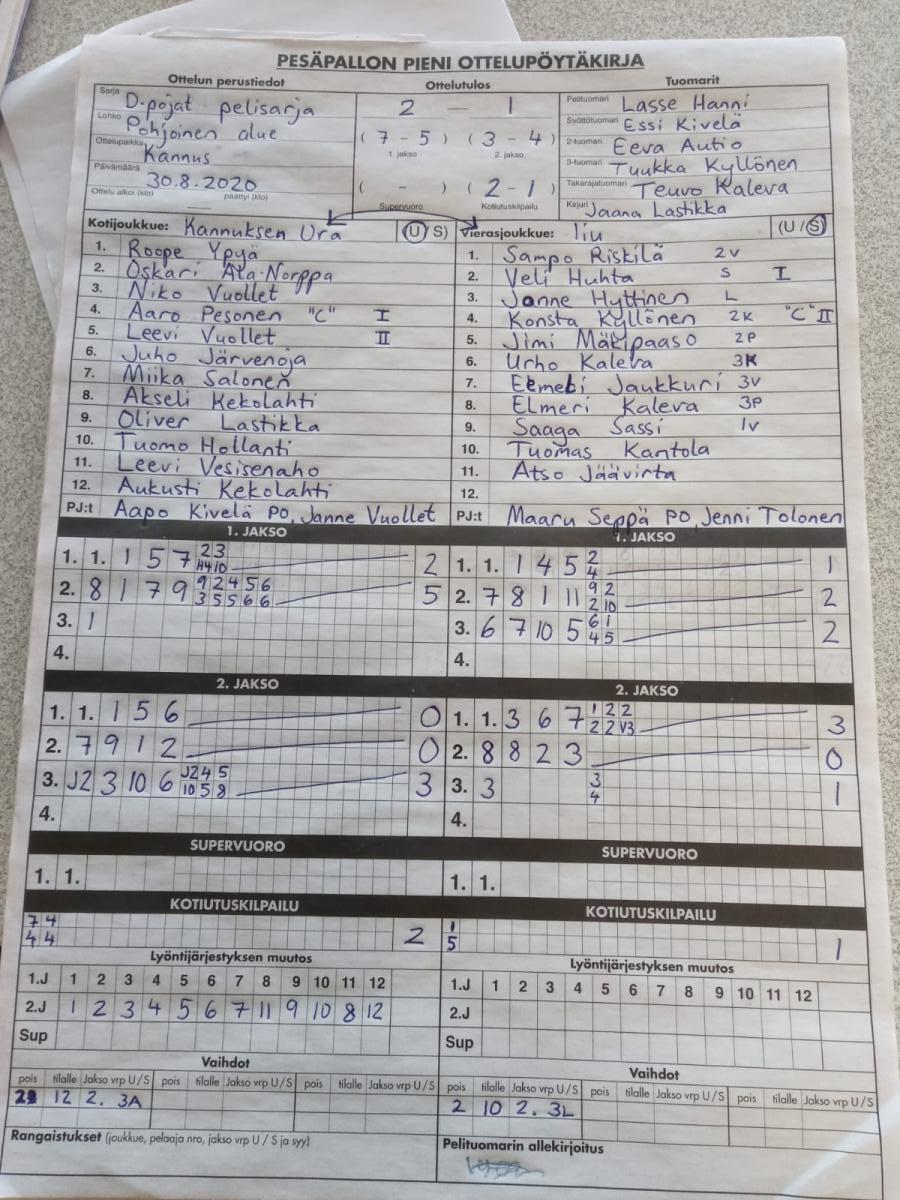 PESÄPALLON PIENI OTTELUPÖYTÄKIRJA
Ottelun perustiedot
Sarja D-pojat pelisarja
Lohko Pohjoinen alue
Ottelupaikka Kannus
Päivämäärä 30.8.2020
Ottelu alkoi (klo) päättyi (klo)
Ottelutulos
2 — 1
( 7 - 5 ) ( 3 - 4 )
1. jakso 2. jakso
( - ) ( 2 - 1 )
Supervuoro Kotiutuskilpailu
Tuomarit
Pelituomari Lasse Hanni
Syöttötuomari Essi Kivelä
2-tuomari Eeva Autio
3-tuomari Tuukka Kyllönen
Takarajatuomari Teuvo Kaleva
Kirjuri Jaana Lastikka
Kotijoukkue: Kannuksen Ura (U/S)
1. Roope Ypyä
2. Oskari Ala-Norppa
3. Niko Vuollet
4. Aaro Pesonen "C" I
5. Leevi Vuollet II
6. Juho Järvenoja
7. Miika Salonen
8. Akseli Kekolahti
9. Oliver Lastikka
10. Tuomo Hollanti
11. Leevi Vesisenaho
12. Aukusti Kekolahti
PJ:t Aapo Kivelä PO, Janne Vuollet
Vierasjoukkue: Iiu (U/S)
1. Sampo Riskilä 2V
2. Veli Huhta S I
3. Janne Hyttinen L
4. Konsta Kyllönen 2K "C" II
5. Jimi Mäkipaaso 2P
6. Urho Kaleva 3K
7. Jaukkuri 3V
8. Elmeri Kaleva 3P
9. Saaga Sassi 1V
10. Tuomas Kantola
11. Atso Jäävirta
12.
PJ:t Maaru Seppä PO, Jenni Tolonen
1. JAKSO
1. 1. 1 5 7 2 3 2
H4 10
2. 8 1 7 9 9 2 4 5 6 5
3 5 5 6 6
3. 1
4.
1. JAKSO
1. 1. 1 4 5 2 1
4
2. 7 8 1 11 9 2 2
2 10
3. 6 7 10 5 6 1 2
4 5
4.
2. JAKSO
1. 1. 1 5 6 0
2. 7 9 1 2 0
3. J2 3 10 6 J2 4 5 3
10 5 8
4.
2. JAKSO
1. 1. 3 6 7 1 2 2 3
2 2 V3
2. 8 8 2 3 0
3. 3 3 1
4
4.
SUPERVUORO
1. 1.
SUPERVUORO
1. 1.
KOTIUTUSKILPAILU
7 4
4 4 2
KOTIUTUSKILPAILU
1
5 1
Lyöntijärjestyksen muutos
1.J 1 2 3 4 5 6 7 8 9 10 11 12
2.J 1 2 3 4 5 6 7 11 9 10 8 12
Sup
Lyöntijärjestyksen muutos
1.J 1 2 3 4 5 6 7 8 9 10 11 12
2.J
Sup
Vaihdot
pois tilalle Jakso vrp U/S pois tilalle Jakso vrp U/S pois tilalle Jakso vrp U/S
12 2. 3A
Vaihdot
pois tilalle Jakso vrp U/S pois tilalle Jakso vrp U/S pois tilalle Jakso vrp U/S
2 10 2. 3L
Rangaistukset (joukkue, pelaaja nro, jakso vrp U / S ja syy)
Pelituomarin allekirjoitus